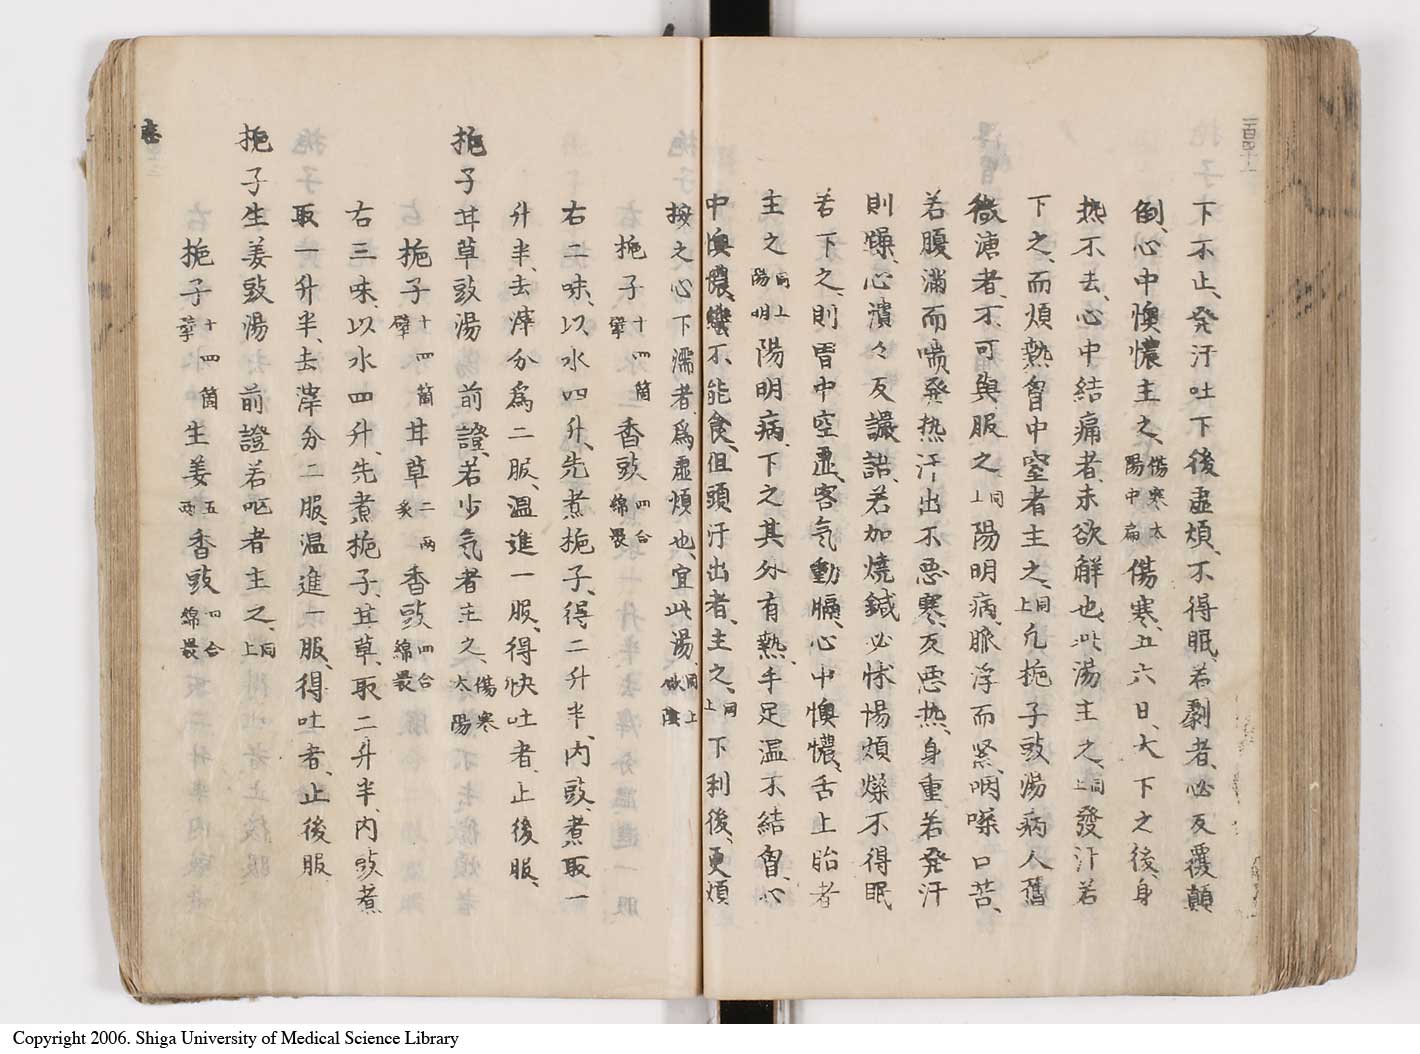 下不止、発汗吐下後虚煩、不得眠、若劇者、必反覆顛
倒、心中懊憹主之、傷寒太陽中扁傷寒、五六日、大下之後、身
热不去、心中結痛者、未欲解也、此湯主之、同上發汗若
下之、而煩熱胷中窒者主之、同上凢梔子豉湯病人舊
微溏者、不可與服之同上陽明病、脈浮而緊、咽噪口苦、
若腹満而喘、発热汗出不悪寒、反悪热、身重若発汗
則燥、心濆々反讝語、若加焼鍼必怵惕煩燥不得眠
若下之、則胃中空虚、客気動膈、心中懊憹、舌上胎者
主之同上陽明陽明病、下之其外有熱、手足温不結胷、心
中懊憹、饑不能食、但頭汗出者、主之、同上下利後、更煩
按之心下濡者、為虚煩也、宜此湯、同上欬陰
梔子十四箇擘香豉四合綿裹
右二味、以水四升、先煮梔子、得二升半、内豉、煮取一
升半、去滓分為二服、温進一服、得快吐者、止後服、
梔子甘草豉湯前證、若少気者主之、傷寒太陽
梔子十四箇擘甘草二両炙香豉四合綿裹
右三味、以水四升、先煮梔子、甘草、取二升半、内豉煮
取一升半、去滓分二服、温進一服、得吐者、止後服
梔子生姜豉湯前證若呕者主之、同上
梔子十四箇擘生姜五両香豉四合綿裹